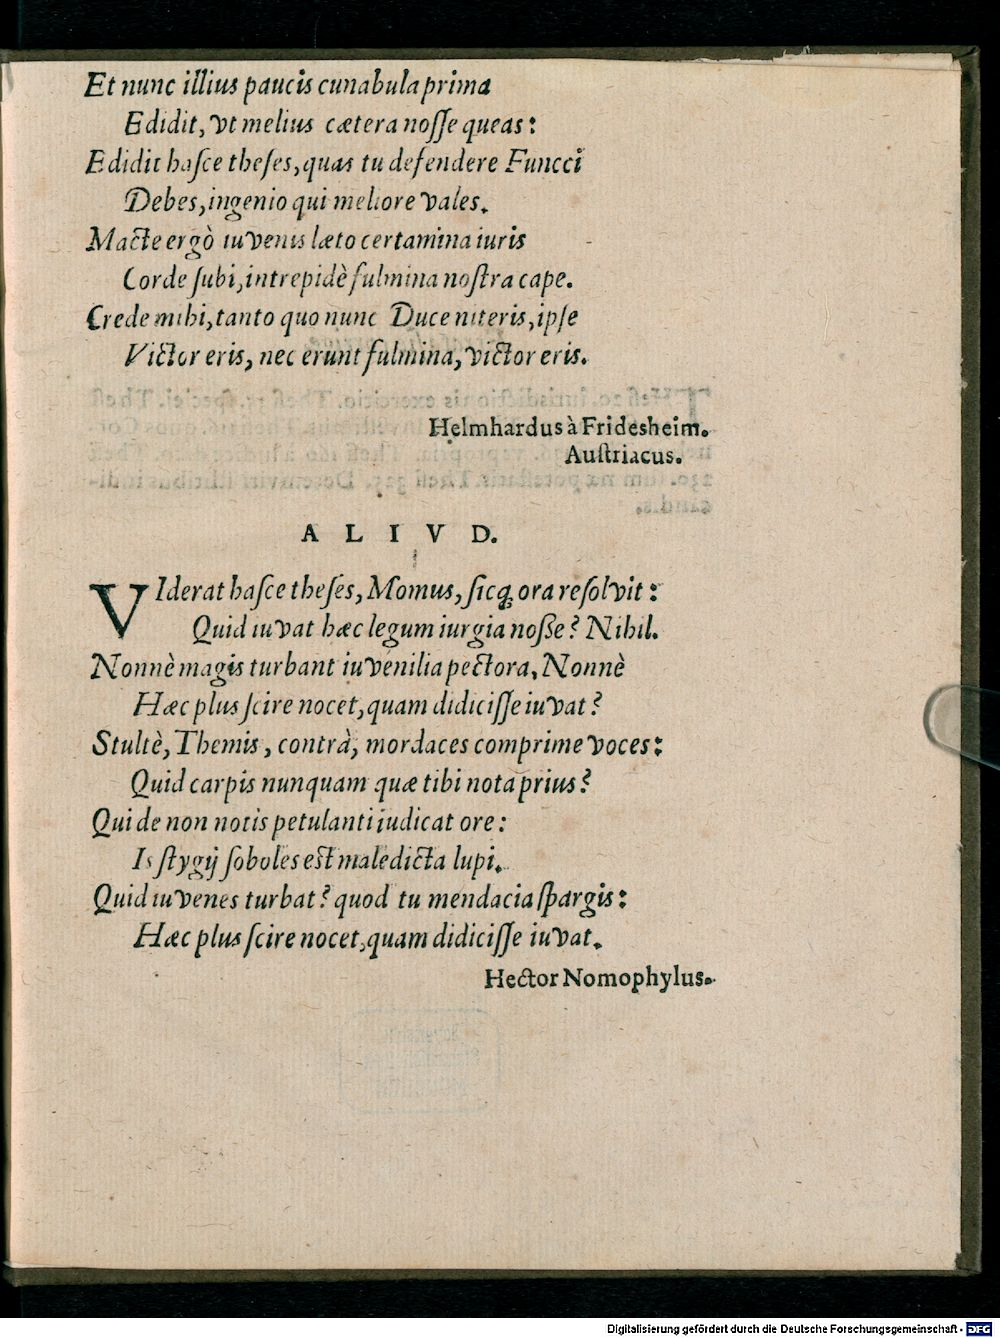 Et nunc illius paucis cunabula prima
Edidit, vt melius cætera noſſe queas:
Edidit haſce theſes, quas tu defendere Funcci
Debes, ingenio qui meliore vales.
Macte ergò iuvenis læto certamina iuris
Corde ſubi, intrepidè fulmina noſtra cape.
Crede mihi, tanto quo nunc Duce niteris, ipſe
Victor eris, nec erunt fulmina, victor eris.
Helmhardus à Frideſheim.
Auſtriacus.
ALIVD.
VIderat haſce theſes, Momus, ſicq; ora reſolvit:
Quid iuvat hæc legum iurgia noſſe? Nihil.
Nonnè magis turbant iuvenilia pectora, Nonnè
Hæc plus ſcire nocet, quam didiciſſe iuvat?
Stultè, Themis, contrà, mordaces comprime voces:
Quid carpis nunquam quæ tibi nota prius?
Qui de non notis petulanti iudicat ore:
Is ſtygij ſoboles eſt maledicta lupi.
Quid iuvenes turbat? quod tu mendacia ſpargis:
Hæc plus ſcire nocet, quam didiciſſe iuvat.
Hector Nomophylus.
Digitalisierung gefördert durch die Deutsche Forschungsgemeinschaft - DFG